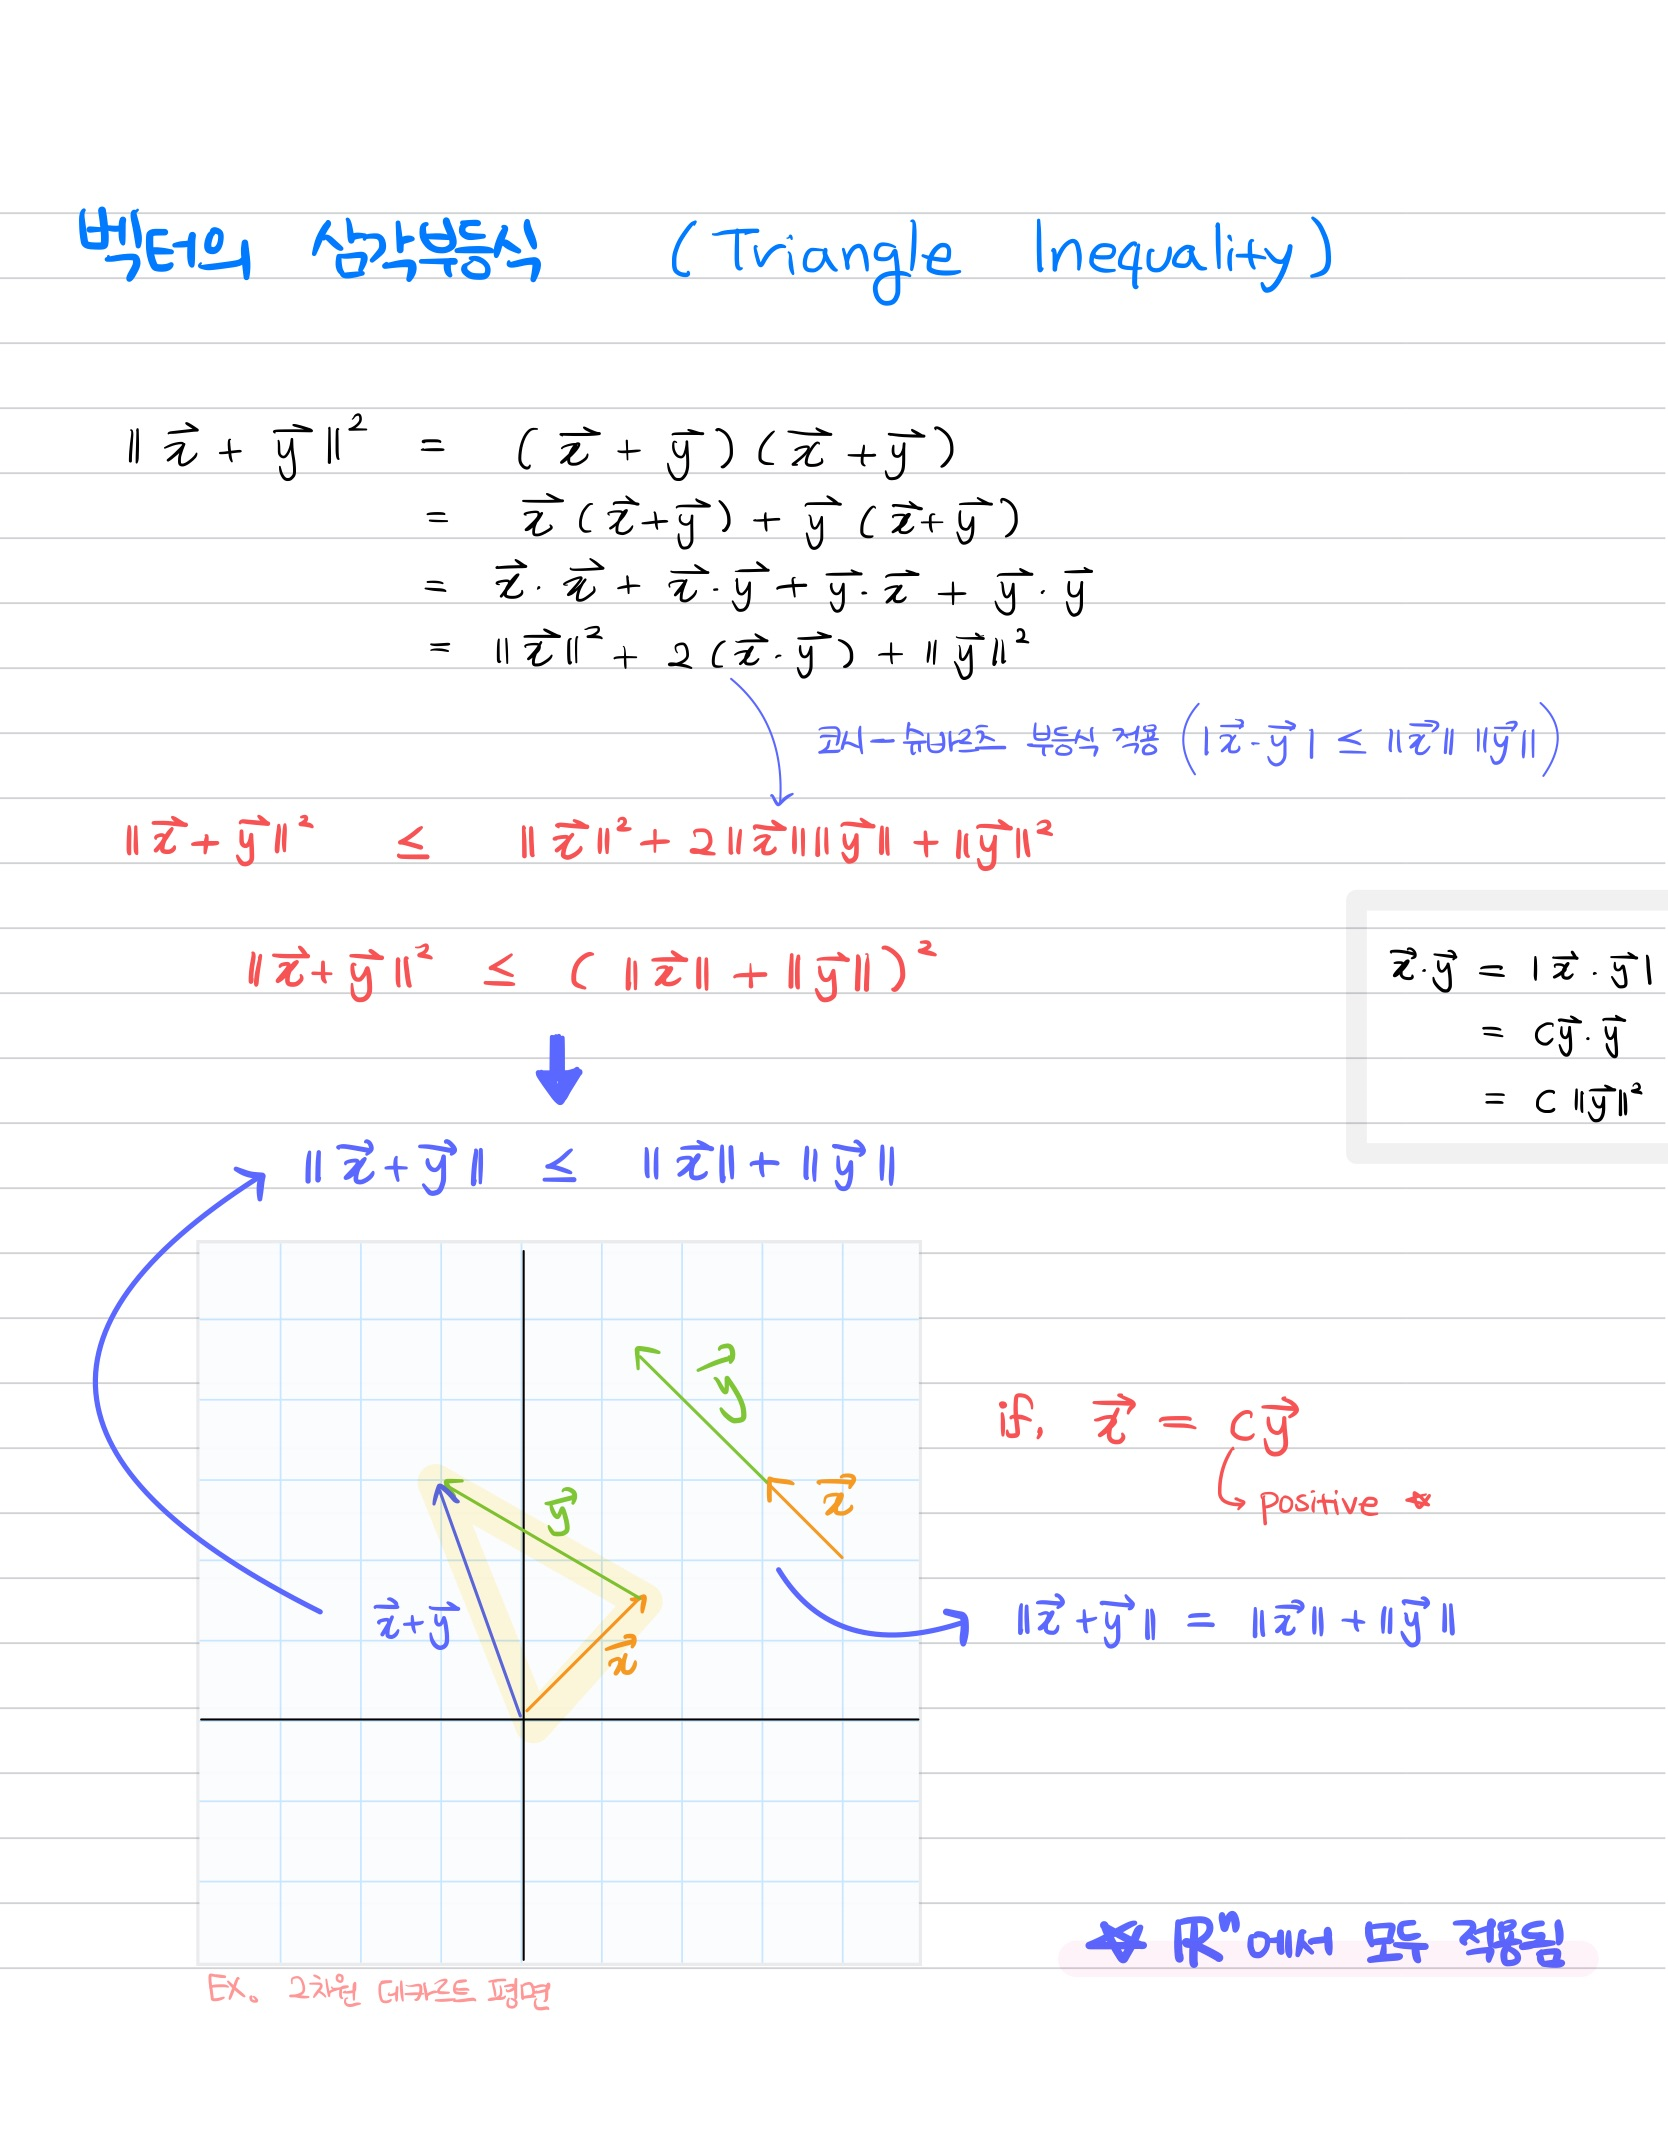 벡터의 삼각부등식 (Triangle Inequality)
‖x⃗ + y⃗‖² = (x⃗ + y⃗)(x⃗ + y⃗)
= x⃗(x⃗+y⃗) + y⃗(x⃗+y⃗)
= x⃗·x⃗ + x⃗·y⃗ + y⃗·x⃗ + y⃗·y⃗
= ‖x⃗‖² + 2(x⃗·y⃗) + ‖y⃗‖²
코시-슈바르츠 부등식 적용 (|x⃗·y⃗| ≤ ‖x⃗‖ ‖y⃗‖)
‖x⃗+y⃗‖² ≤ ‖x⃗‖² + 2‖x⃗‖‖y⃗‖ + ‖y⃗‖²
‖x⃗+y⃗‖² ≤ (‖x⃗‖ + ‖y⃗‖)²
x⃗·y⃗ = |x⃗·y⃗|
= cy⃗·y⃗
= c‖y⃗‖²
‖x⃗+y⃗‖ ≤ ‖x⃗‖ + ‖y⃗‖
y⃗
x⃗
y⃗
x⃗+y⃗
x⃗
if, x⃗ = cy⃗
positive ☆
‖x⃗+y⃗‖ = ‖x⃗‖ + ‖y⃗‖
☆ ℝⁿ에서 모두 적용됨
EX. 2차원 데카르트 평면